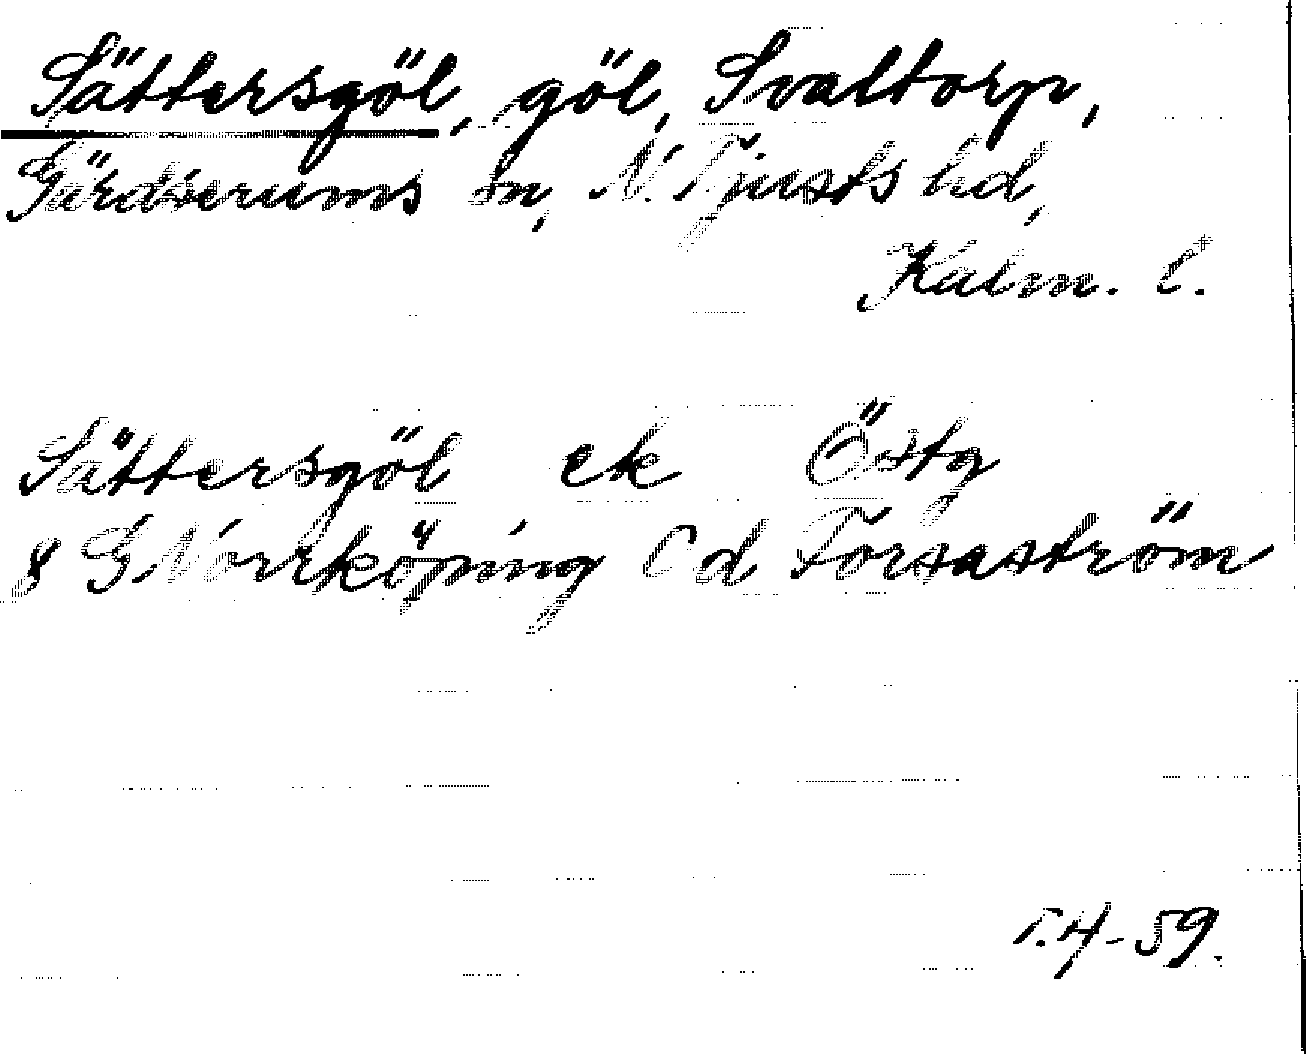 Sättersgöl, göl, Svaltorp,
Gärdserums sn, N. Tjusts hd,
Kalm. l.
Sättersgöl ek Östg
8 G Norrköping Cd Forsaström
T.H-59.